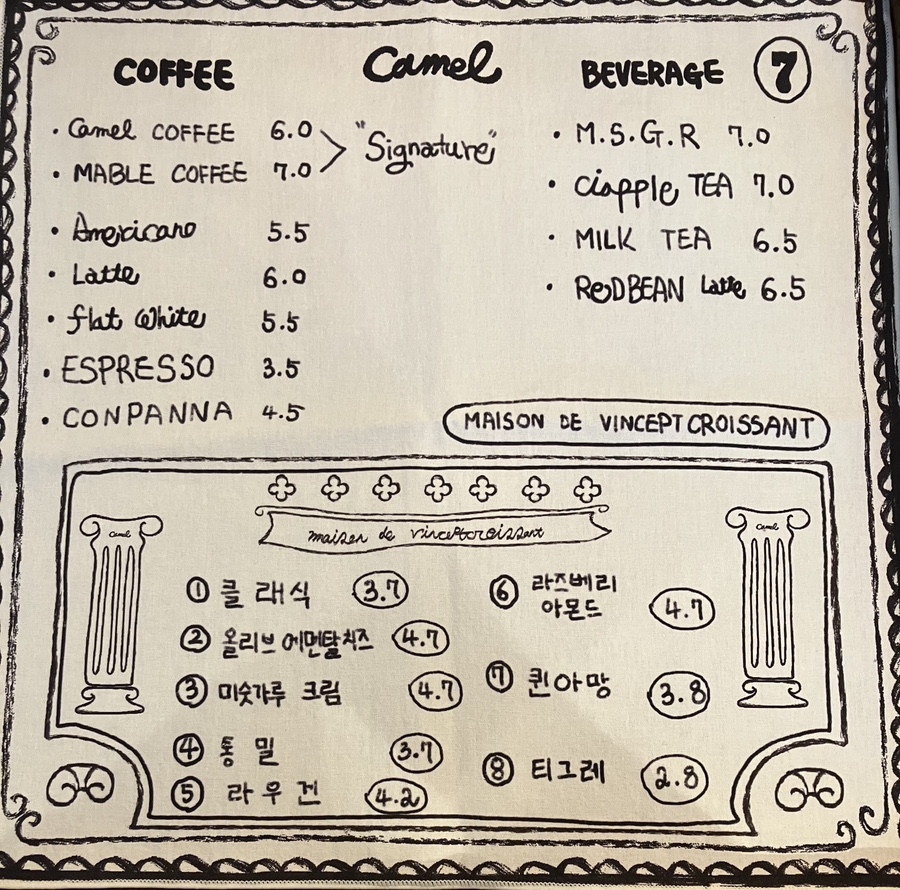 COFFEE
Camel COFFEE 6.0
MABLE COFFEE 7.0
Americano 5.5
Latte 6.0
flat white 5.5
ESPRESSO 3.5
CONPANNA 4.5
Camel
"Signature"
BEVERAGE 7
M.S.G.R 7.0
ciapple TEA 7.0
MILK TEA 6.5
ReDBEAN Latte 6.5
MAISON DE VINCEPT CROISSANT
maison de vinceptcroissant
Camel
Camel
① 클래식 3.7
② 올리브 에멘탈치즈 4.7
③ 미숫가루 크림 4.7
④ 통밀 3.7
⑤ 라우겐 4.2
⑥ 라즈베리
아몬드 4.7
⑦ 퀸아망 3.8
⑧ 티그레 2.8